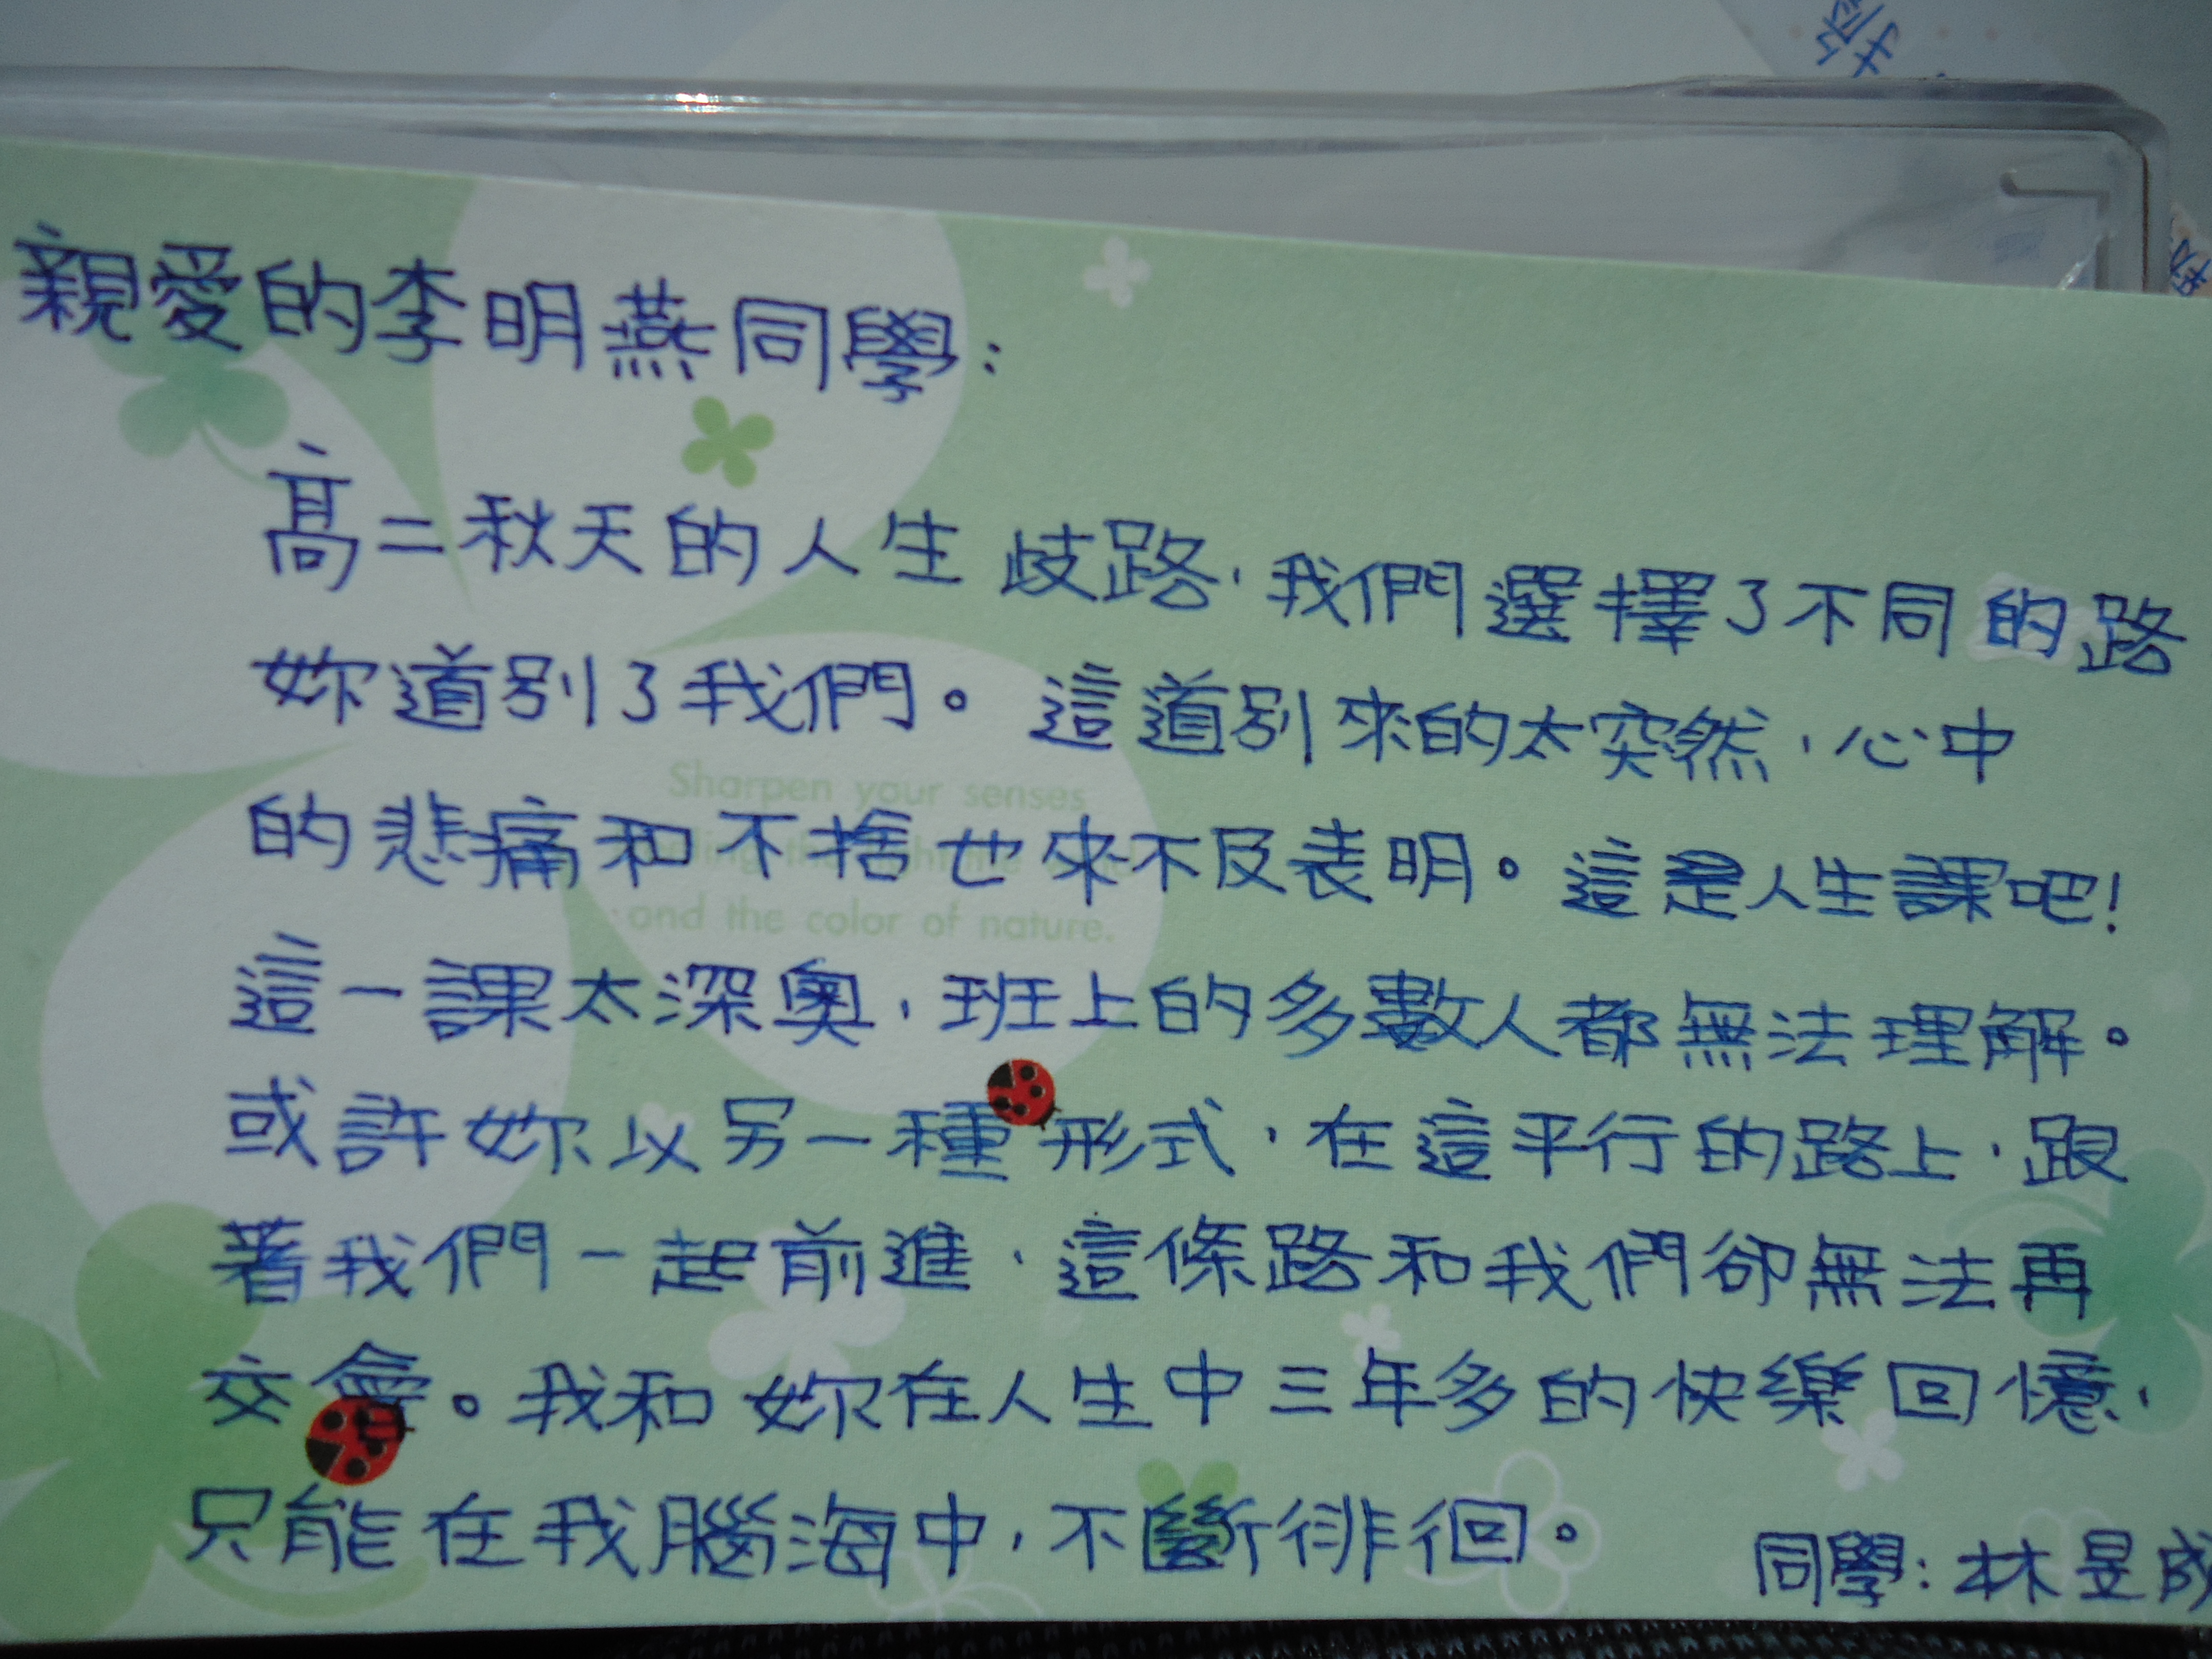 親愛的李明燕同學:
高二秋天的人生歧路,我們選擇了不同的路
妳道別了我們。這道別來的太突然,心中
的悲痛和不捨也來不及表明。這是人生課吧!
這一課太深奧,班上的多數人都無法理解。
或許妳以另一種形式,在這平行的路上,跟
著我們一起前進,這條路和我們卻無法再
交會。我和妳在人生中三年多的快樂回憶,
只能在我腦海中,不斷徘徊。
同學:林昱成
Sharpen your senses
and the color of nature.